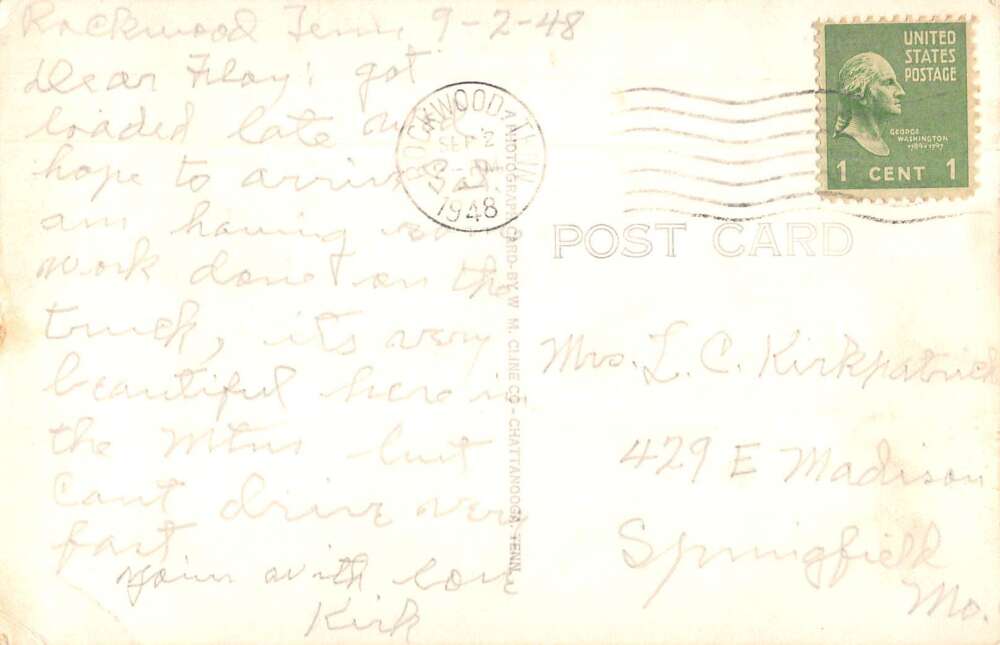 Rockwood Tenn 9-2-48
Dear Floy; got
loaded late and
hope to arrive
am having some
work done on the
truck, it's very
beautiful here in
the Mtns but
cant drive very
fast
Yours with love
Kirk
ROCKWOOD TENN
SEP 2
PM
1948
PHOTOGRAPH CARD-BY W. M. CLINE CO-CHATTANOOGA, TENN.
UNITED
STATES
POSTAGE
GEORGE
WASHINGTON
1789 1797
1 CENT 1
POST CARD
Mrs. L. C. Kirkpatrick
429 E Madison
Springfield
Mo.